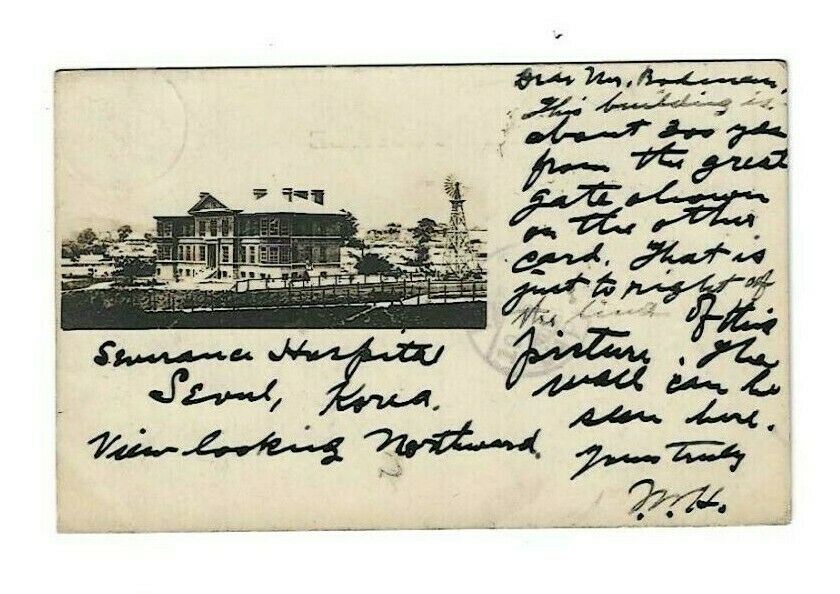 Severance Hospital
Seoul, Korea.
View looking Northward.
Dear Mr.
This building is
about 200 yds
from the great
gate shown
on the other
card. That is
just to right of
the line of this
picture. The
wall can be
seen here.
Yours truly
H.